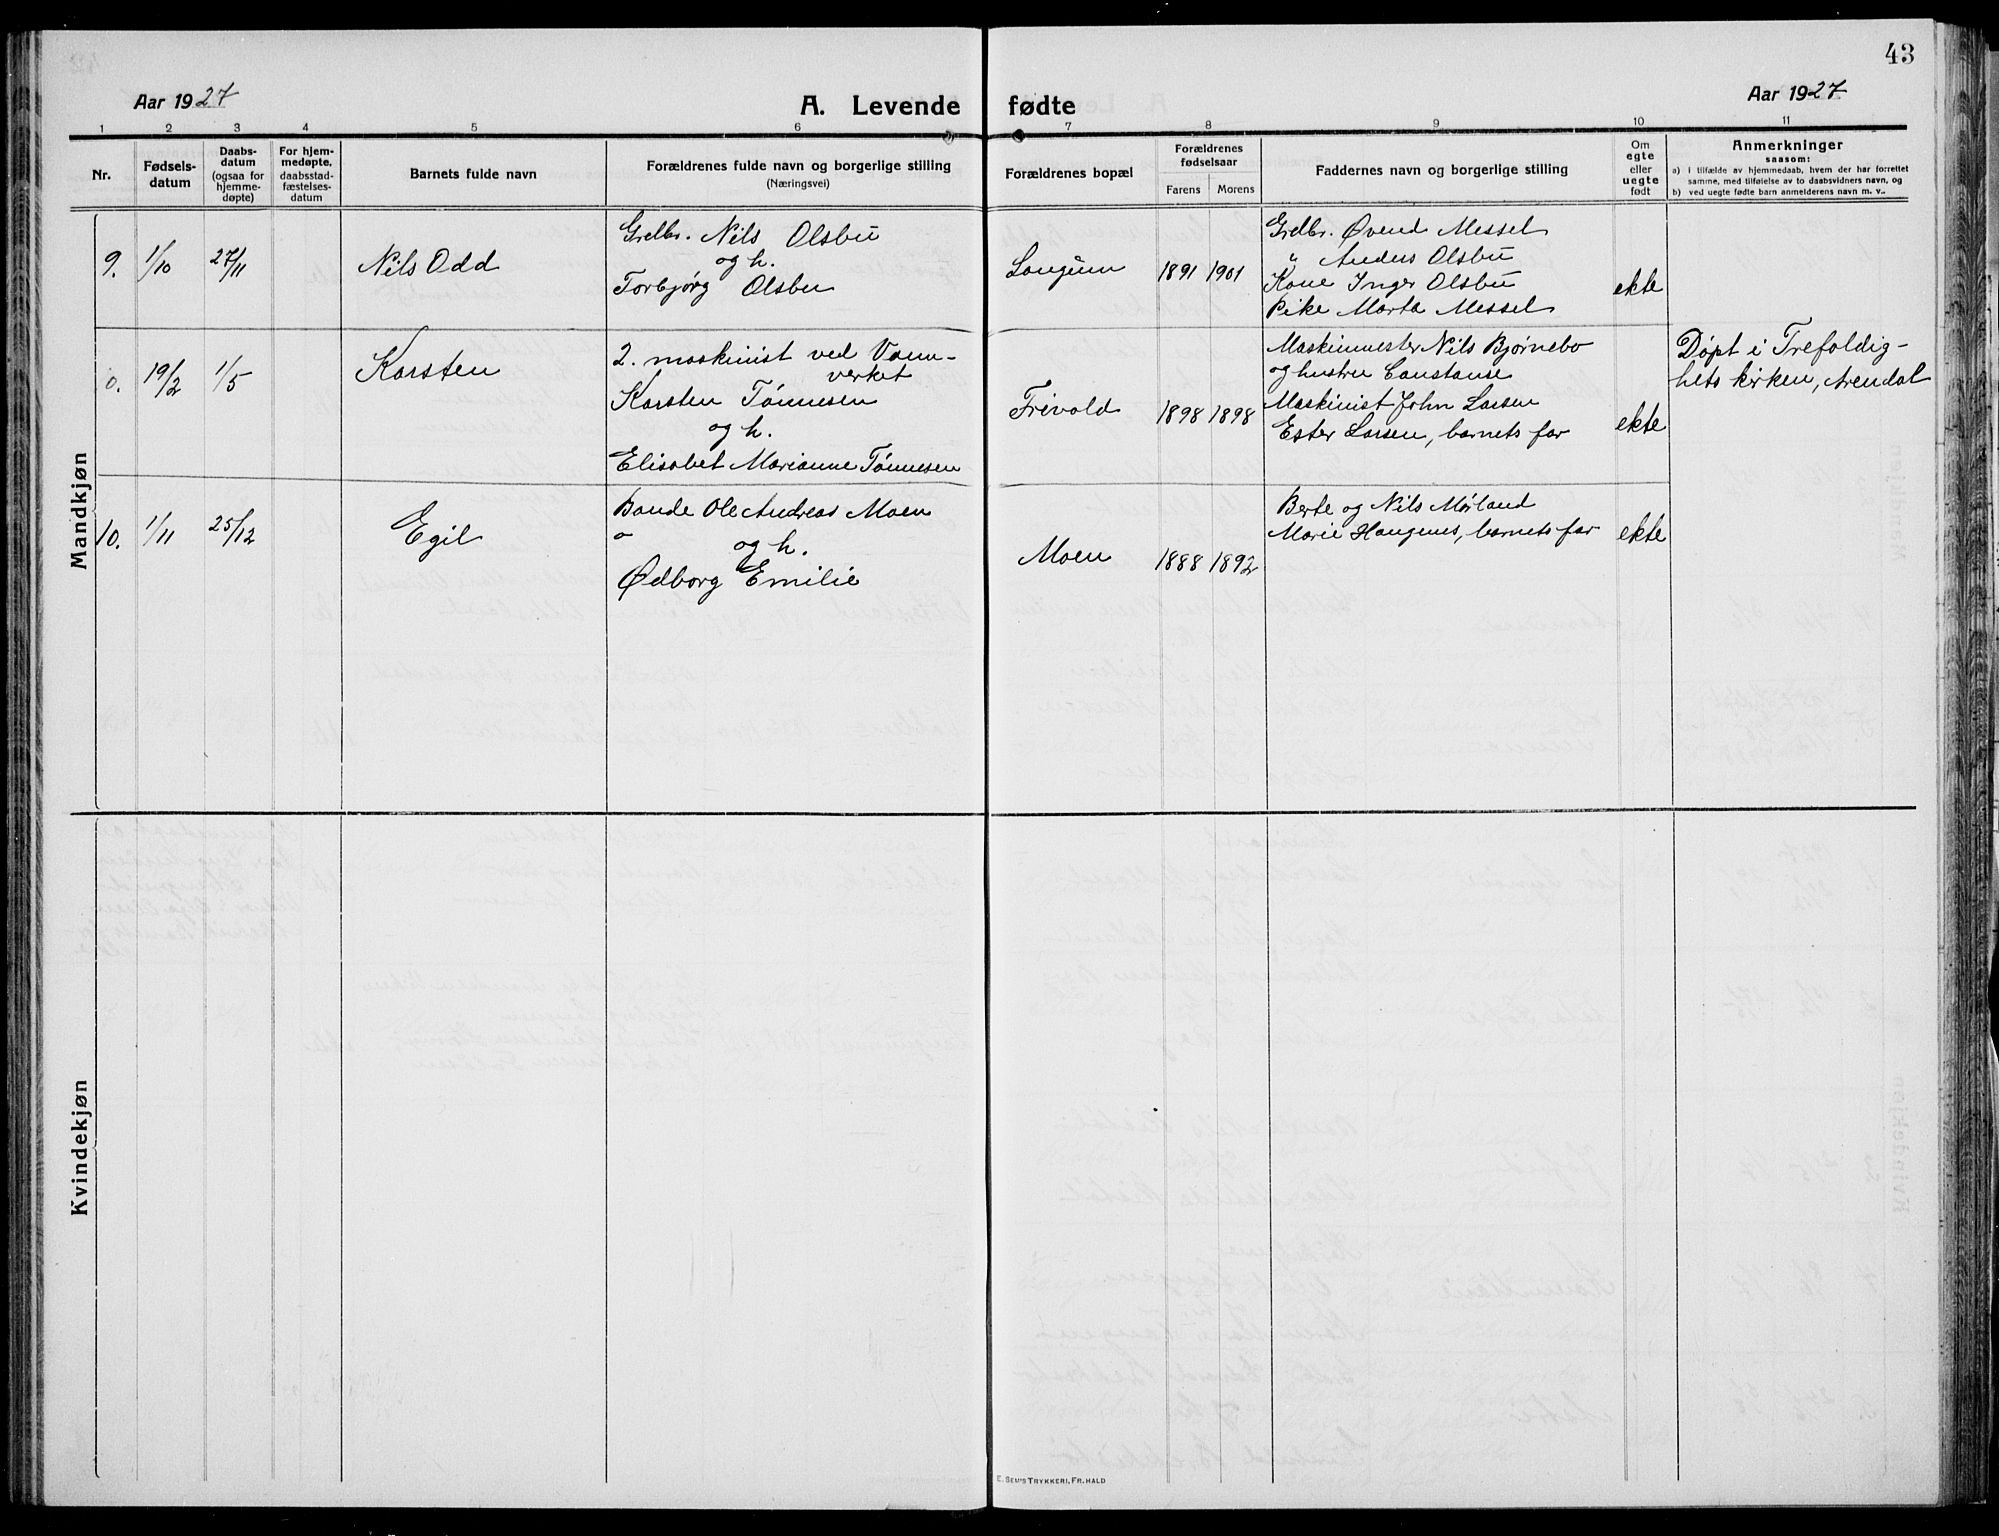 43
Aar 1927
A. Levende fødte
Aar 1927
1 2 3 4 5 6 7 8 9 10 11
Nr.
Fødsels-
datum
Daabs-
datum
(ogsaa for
hjemme-
døpte)
For hjem-
medøpte,
daabsstad-
fæstelses-
datum
Barnets fulde navn
Forældrenes fulde navn og borgerlige stilling
(Næringsvei)
Forældrenes bopæl
Forældrenes
fødselsaar
Farens Morens
Faddernes navn og borgerlige stilling
Om
egte
eller
uegte
født
Anmerkninger
saasom:
a) i tilfælde av hjemmedaab, hvem der har forrettet
samme, med tilføielse av to daabsvidners navn, og
b) ved uegte fødte barn anmelderens navn m. v..
Mandkjøn
9. 1/10 27/11
Nils Odd
Grdbr. Nils Olsbu
og h.
Torbjørg Olsbu
Longum
1891 1901
Grdbr. Øvend Messel
" Anders Olsbu
Kone Inger Olsbu
Pike Marta Messel
ekte
0. 19/2 1/5
Karsten
2. maskinist ved Vann-
verket
Karsten Tønnesen
og h.
Elisabet Marianne Tønnesen
Frivold
1898 1898
Maskinmester Nils Bjørnebo
og hustru Constanse
Maskinist John Larsen
Ester Larsen, barnets far
ekte
Døpt i Trefoldig-
hets kirken, Arendal
10. 1/11 25/12
Egil
Bonde Ole Andreas Moen
og h.
Ødborg Emilie
Moen
1888 1892
Berte og Nils Mørland
Marie Haugenes, barnets far
ekte
Kvindekjøn
E. SEM'S TRYKKERI, FR.HALD